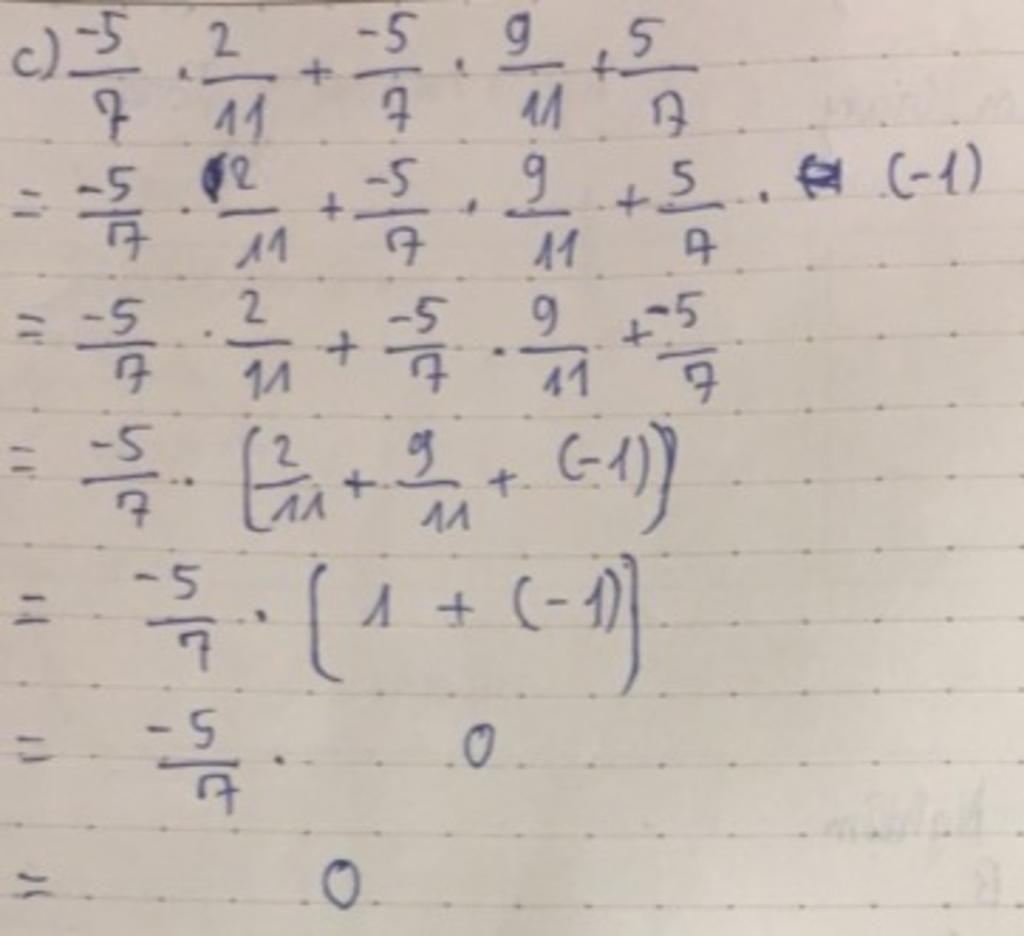 c) -5/7 . 2/11 + -5/7 . 9/11 + 5/7
= -5/7 . 2/11 + -5/7 . 9/11 + 5/7 . (-1)
= -5/7 . 2/11 + -5/7 . 9/11 + -5/7
= -5/7 . [2/11 + 9/11 + (-1)]
= -5/7 . [1 + (-1)]
= -5/7 . 0
= 0